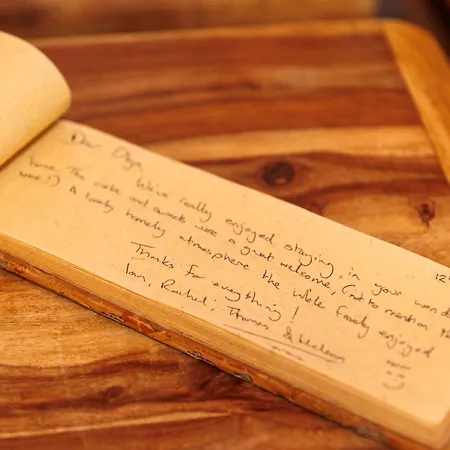 12
Dear Olga,
We've really enjoyed staying in your wond
home. The cake and sweets were a great welcome, (not to mention the
wine!) A lovely homely atmosphere the whole family enjoyed
Thanks for everything!
Iain, Rachel, Thomas &